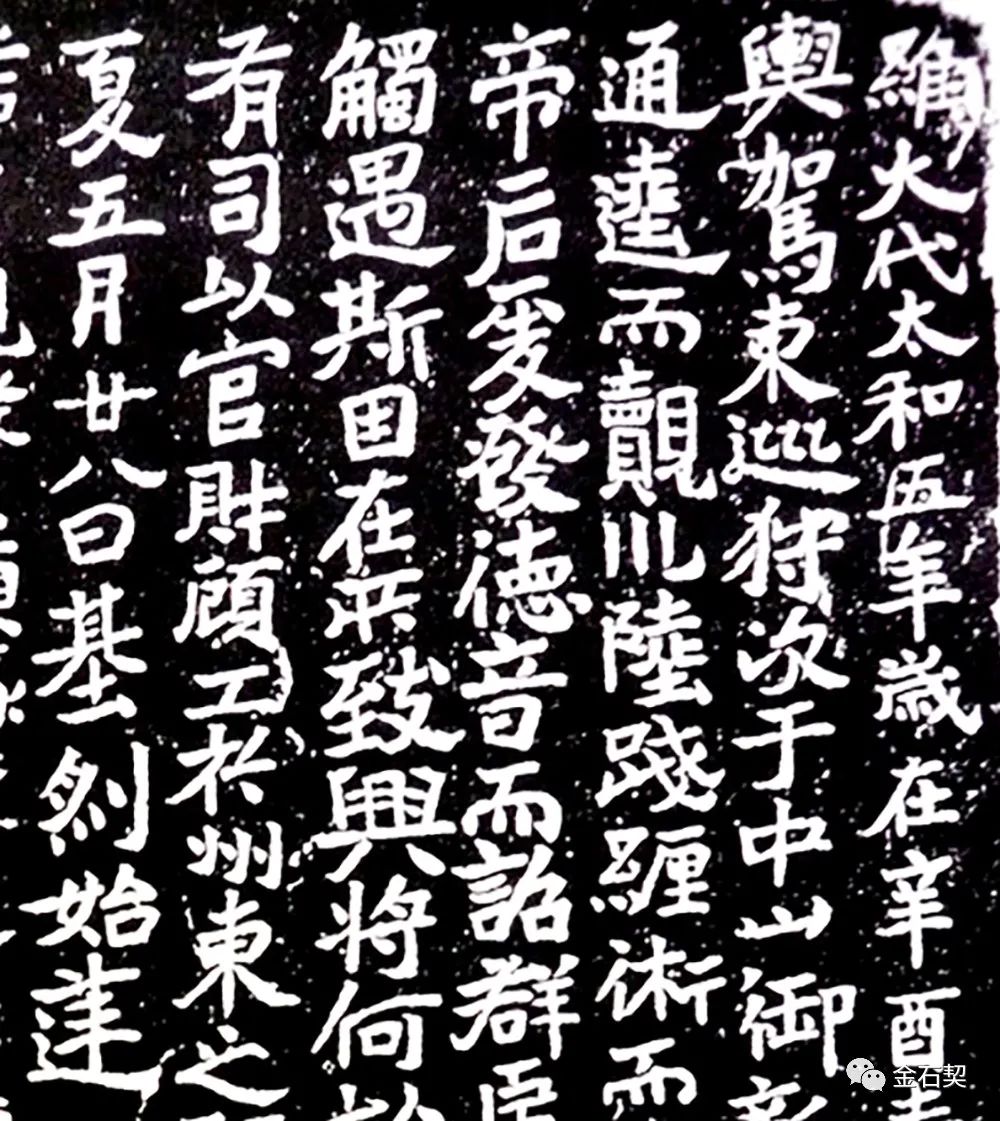 維大代太和五年歲在辛酉春
輿駕東巡狩次于中山御新
通逵而覿川陸踐纏術而
帝后爰發德音而詔群臣
觸遇斯因在所致興將何於
有司以官財顧工於州東之
夏五月廿八日基剏始建
金石契